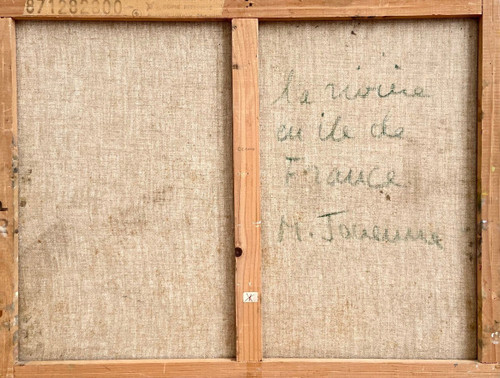 871282600
la rivière
en ile de
France
M. Jouenne
x